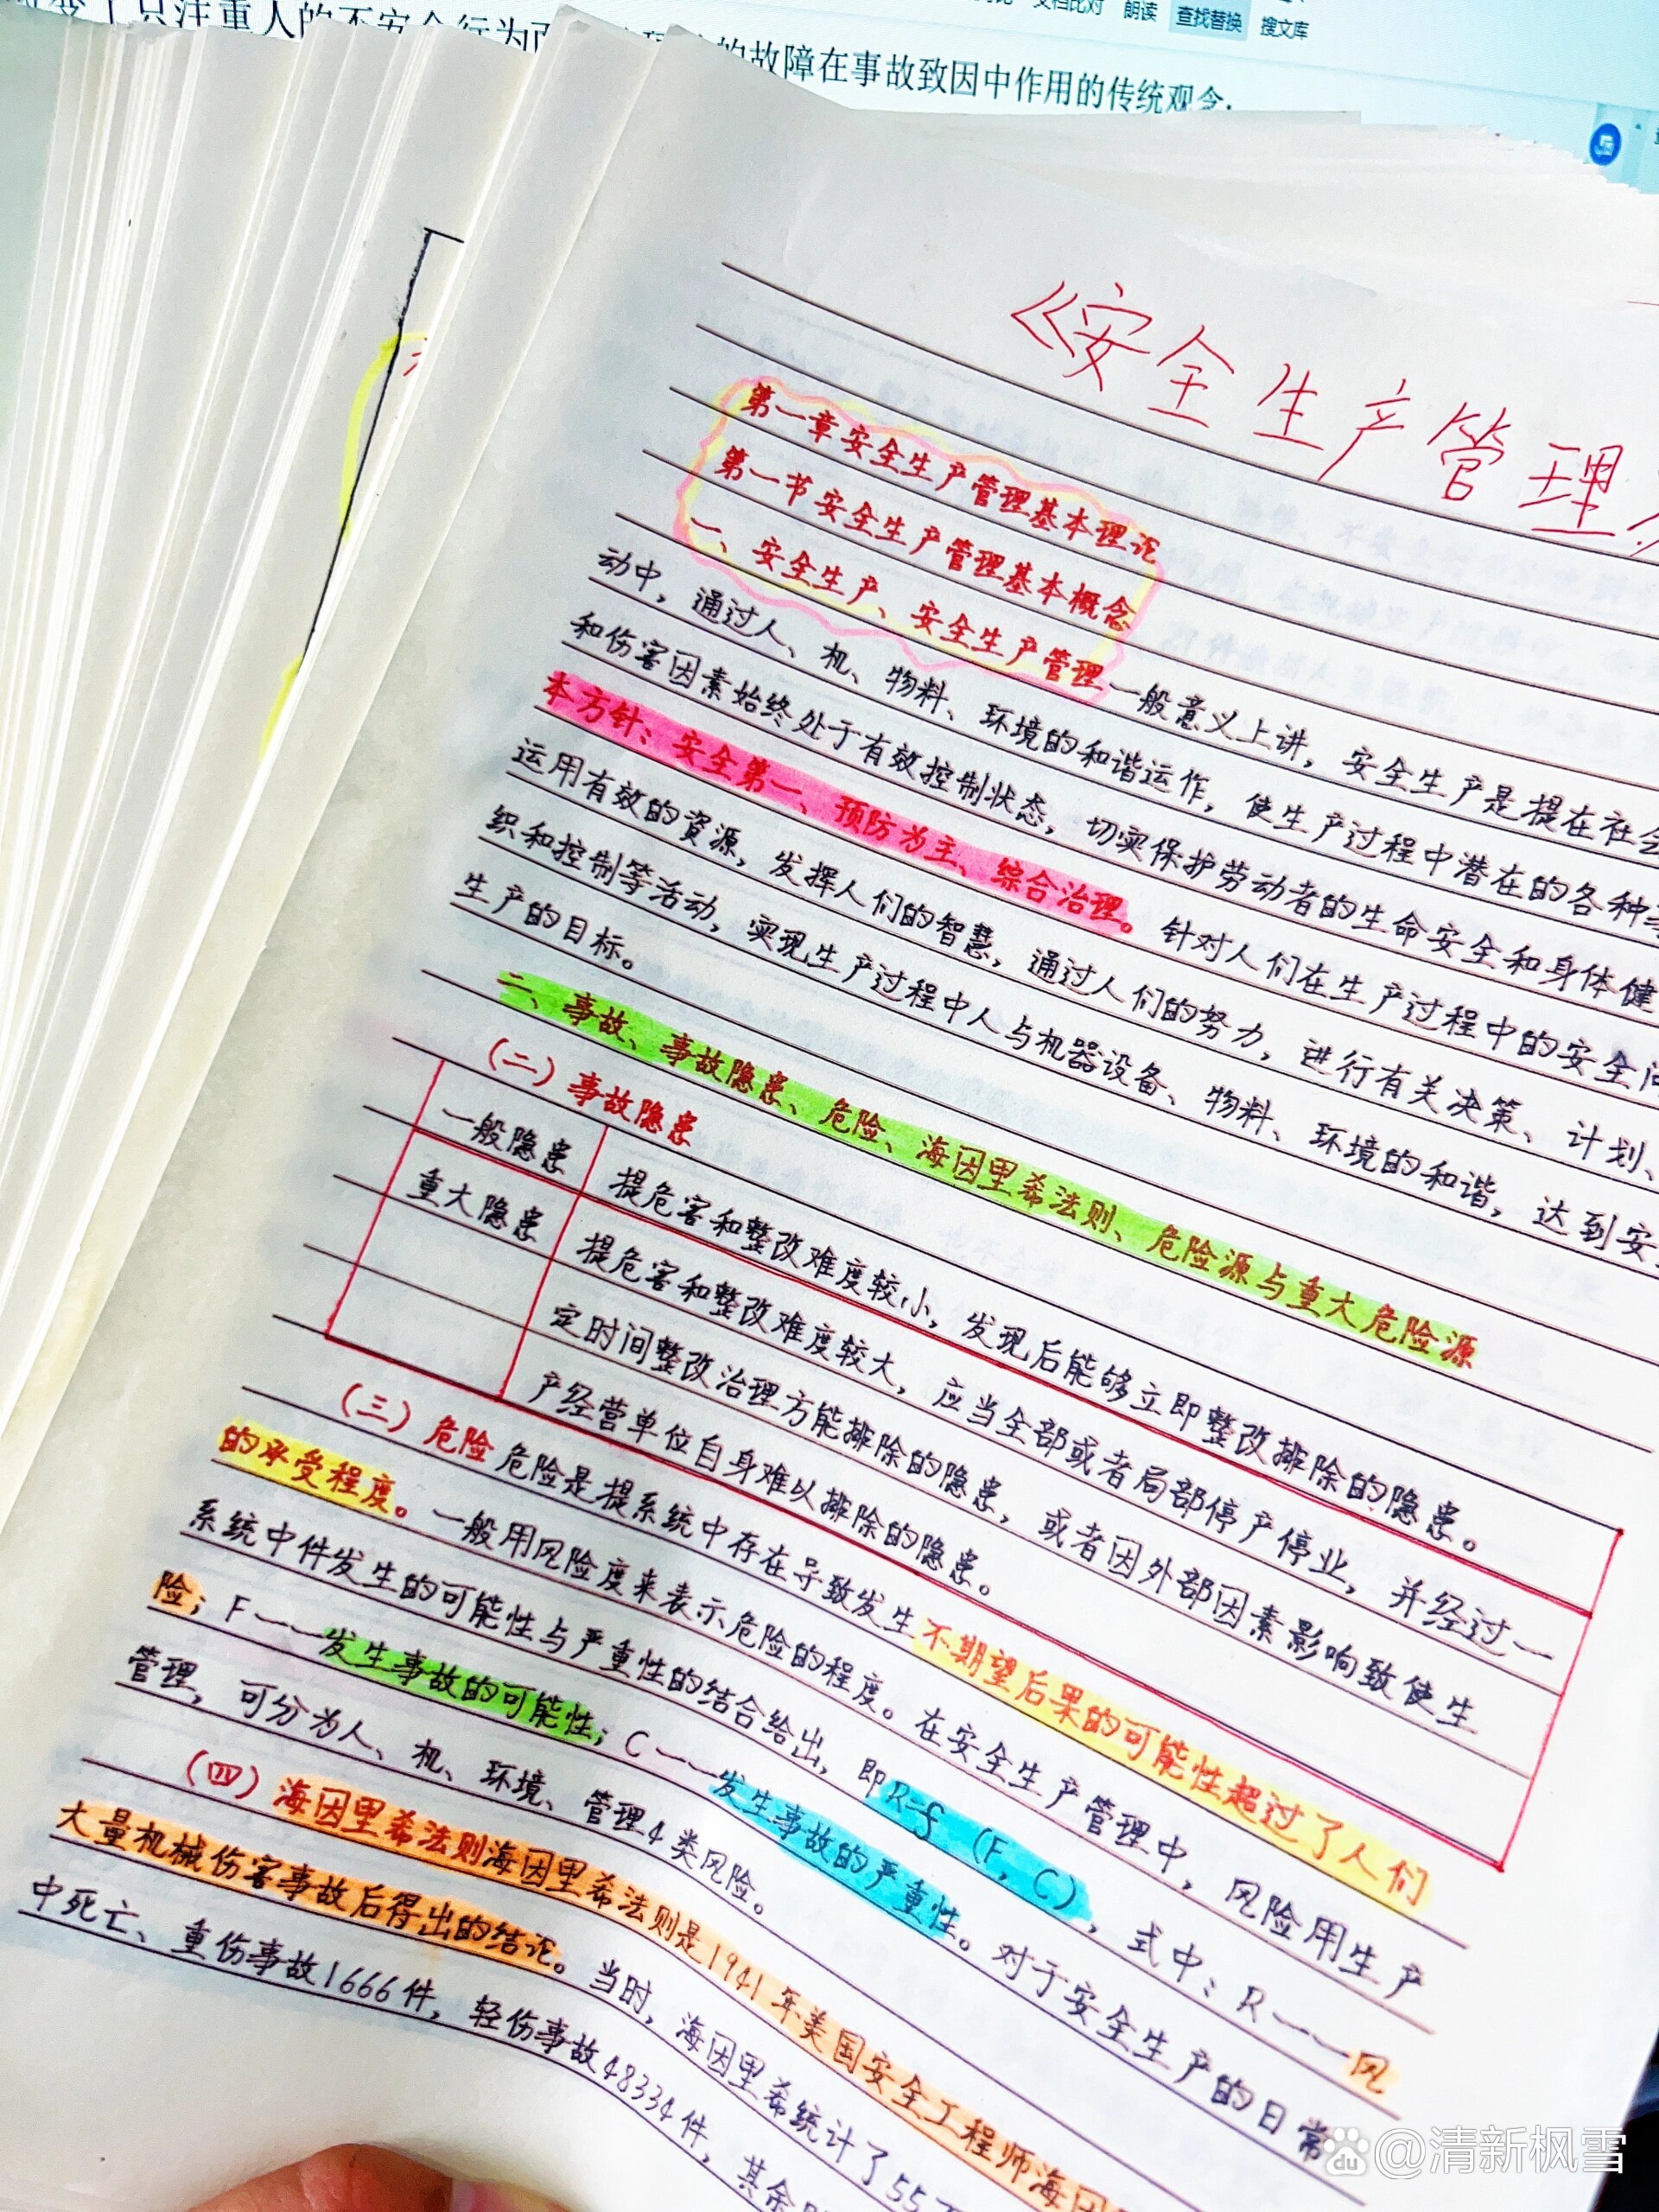 文档比对 朗读 查找替换 搜文库
变了只注重人的不安全行为而
的故障在事故致因中作用的传统观念.
《安全生产管理
第一章安全生产管理基本理论
第一节安全生产管理基本概念
一、安全生产、安全生产管理一般意义上讲，安全生产是提在社会
动中，通过人、机、物料、环境的和谐运作，使生产过程中潜在的各种
和伤害因素始终处于有效控制状态，切实保护劳动者的生命安全和身体健
本方针：安全第一、预防为主、综合治理。针对人们在生产过程中的安全问
运用有效的资源，发挥人们的智慧，通过人们的努力，进行有关决策、计划、
织和控制等活动，实现生产过程中人与机器设备、物料、环境的和谐，达到安
生产的目标。
二、事故、事故隐患、危险、海因里希法则、危险源与重大危险源
（二）事故隐患
一般隐患 提危害和整改难度较小，发现后能够立即整改排除的隐患。
重大隐患 提危害和整改难度较大，应当全部或者局部停产停业，并经过一
定时间整改治理方能排除的隐患，或者因外部因素影响致使生
产经营单位自身难以排除的隐患。
（三）危险 危险是提系统中存在导致发生不期望后果的可能性超过了人们
的承受程度。一般用风险度来表示危险的程度。在安全生产管理中，风险用生产
系统中件发生的可能性与严重性的结合给出，即R=f（F，C），式中：R——风
险；F——发生事故的可能性；C——发生事故的严重性。对于安全生产的日常
管理，可分为人、机、环境、管理4类风险。
（四）海因里希法则海因里希法则是1941年美国安全工程师海因
大量机械伤害事故后得出的结论。当时，海因里希统计了55万
中死亡、重伤事故1666件，轻伤事故48334件，其余
du @清新枫雪